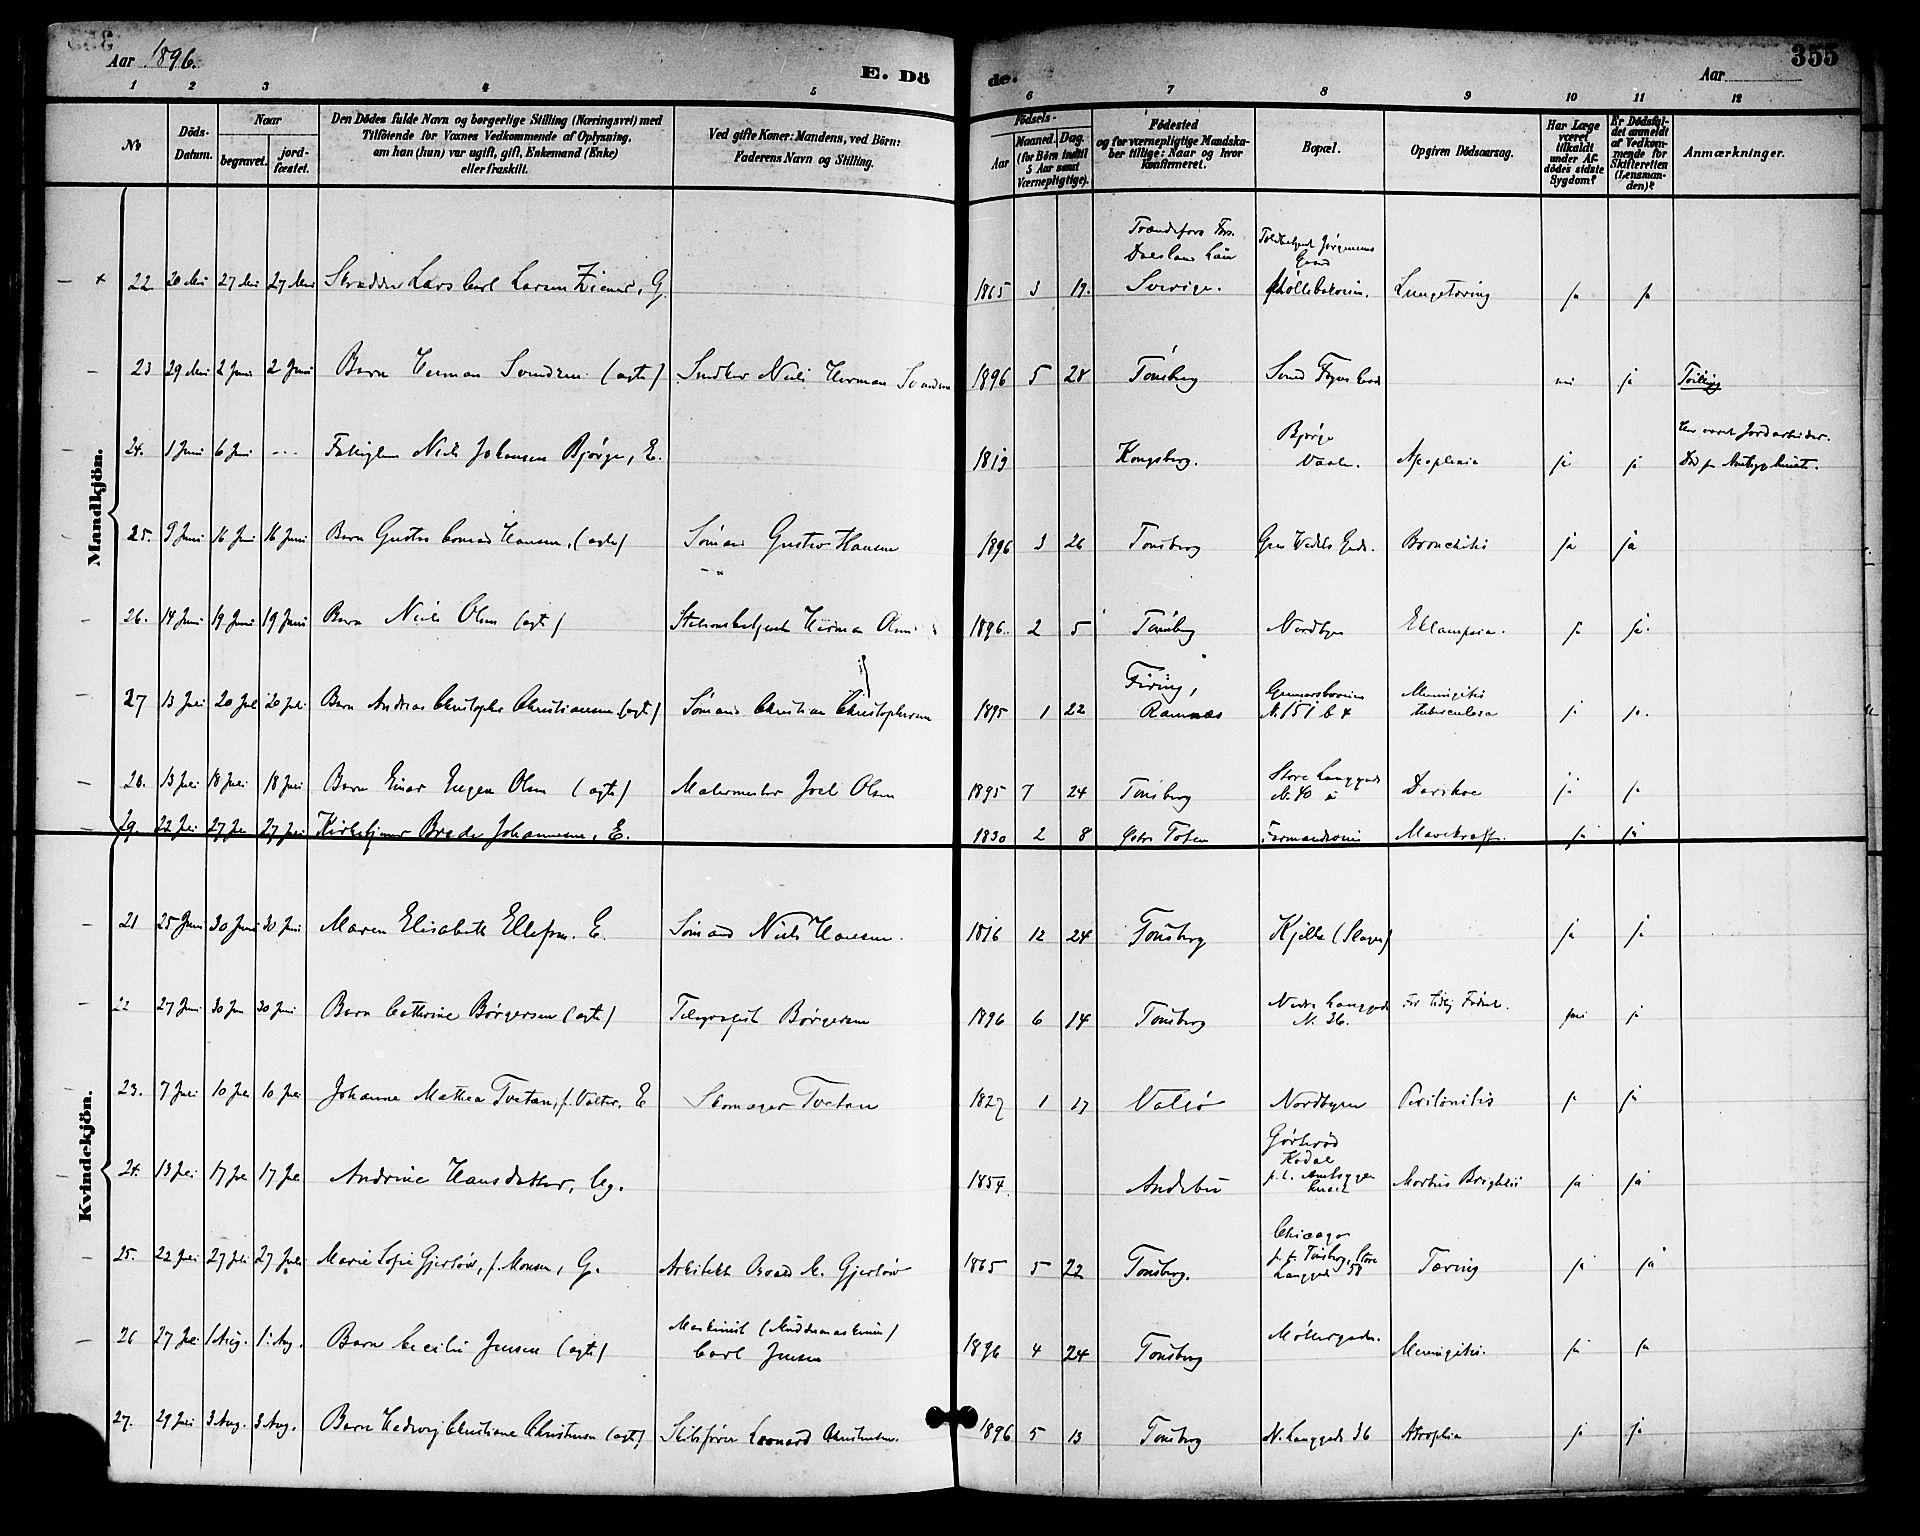 Aar 1896.
E. Dö
de.
Aar
355
1 2 3 4 5 6 7 8 9 10 11 12
No
Döds-Datum.
Naar
begravet.
jordfæstet.
Den Dödes fulde Navn og borgerlige Stilling (Næringsvei) med
Tilföiende for Voxnes Vedkommende af Oplysning,
om han (hun) var ugift, gift, Enkemand (Enke)
eller fraskilt.
Ved gifte Koner: Mandens, ved Börn:
Faderens Navn og Stilling.
Födsels-
Aar
Maaned. Dag.
(for Börn indtil
5 Aar samt
Værnepligtige).
Födested
og for værnepligtige Mandska-
ber tillige: Naar og hvor
konfirmeret.
Bopæl.
Opgiven Dödsaarsag.
Har Læge
været
tilkaldt
under Af-
dödes sidste
Sygdom?
Er Dödsfal-
det anmeldt
af Vedkom-
mende for
Skifteretten
(Lensman-
den)?
Anmærkninger.
Mandkjön.
22 20 Mai 27 Mai 27 Mai Skrædder Lars Carl Larsen, G. 1865 3 19. Sverige. Lungetæring ja ja
23 29 Mai 2 Juni 2 Juni Barn Herman Svendsen (ægte) Snedker Niels Herman Svendsen 1896 5 28 Tönsberg nei ja
24. 1 Juni 6 Juni --- Fattiglem Niels Johansen Bjørge, E. 1819 Kongsberg. Bjørge Vaale. Apoplexia ja ja Har været Jordarbeider.
25. 9 Juni 16 Juni 16 Juni Barn Gustav Conrad Hansen, (ægte) Sömand Gustav Hansen 1896 3 26 Tönsberg Bronchitis ja ja
26. 14 Juni 19 Juni 19 Juni Barn Niels Olsen (ægte) Stationsbetjent Herman Olsen 1896. 2 5 Tönsberg Nordbyen Eklampsia. ja ja.
27 13 Juli 20 Juli 20 Juli Barn Andreas Christopher Christiansen (ægte) Sömand Christian Christophersen 1895 1 22 Ramnæs Gunnarsboveien N. 151 b 4 Meningitis tuberculosa ja ja.
28. 13 Juli 18 Juli 18 Juli Barn Einar Eugen Olsen (ægte) Malermester Joel Olsen 1895 7 24 Tönsberg Store Langgade N. 40 a ja ja
29. 22 Juli 27 Juli 27 Juli Kirketjener Brede Johannesen, E. 1830 2 8 Østre Toten Farmandsveien Mavekræft. ja ja
Kvindekjön.
21 25 Juni 30 Juni 30 Juni Maren Elisabeth Ellefsen. E. Sömand Niels Hansen. 1816 12 24 Tönsberg Kjelle (Slagen) ja ja
22 27 Juni 30 Juni 30 Juni Barn Cathrine Børgersen (ægte) Telegrafist Børgersen 1896 6 14 Tönsberg Nedre Langgade N. 36. For tidlig Födsel. nei ja
23. 7 Juli 10 Juli 10 Juli Johanne Mathea Tvetan, f. Valter, E Skomager Tvetan 1827 1 17 Valsö Nordbyen Peritonitis ja ja
24. 13 Juli 17 Juli 17 Juli Andrine Hansdatter, Ug. 1854. Andebu Kodal Morbus Brightii ja ja
25. 22 Juli 27 Juli 27 Juli Marie Sofie Gjerløw, f. Monsen, G. Arkitekt Osvald M. Gjerløw 1865 5 22 Tönsberg. Chicago p.t. Tönsberg, Store Langgade 58 Tæring ja ja
26 27 Juli 1 Aug. 1. Aug. Barn Cecilie Jensen (ægte) Maskinist (Muddermaskinen) Carl Jensen 1896 4 24 Tönsberg Møllergaden. Meningitis. ja ja
27. 29 Juli 3 Aug. 3 Aug. Barn Hedwig Christiane Christensen (ægte) Skibsfører Leonard Christensen. 1896 5 13 Tönsberg N. Langgade 36 Atrophia ja ja